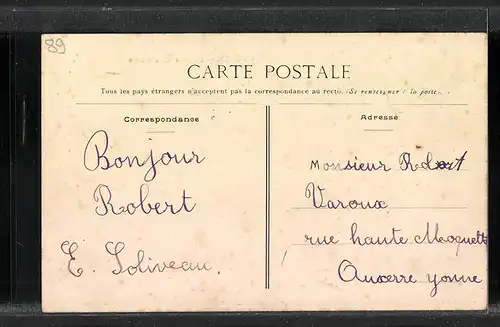 89
CARTE POSTALE
Tous les pays étrangers n'acceptent pas la correspondance au recto. (Se renseigner à la poste).
Correspondance
Bonjour
Robert
E. Soliveau.
Adresse
Monsieur Robert
Varoux
rue haute Moquette
Auxerre yonne